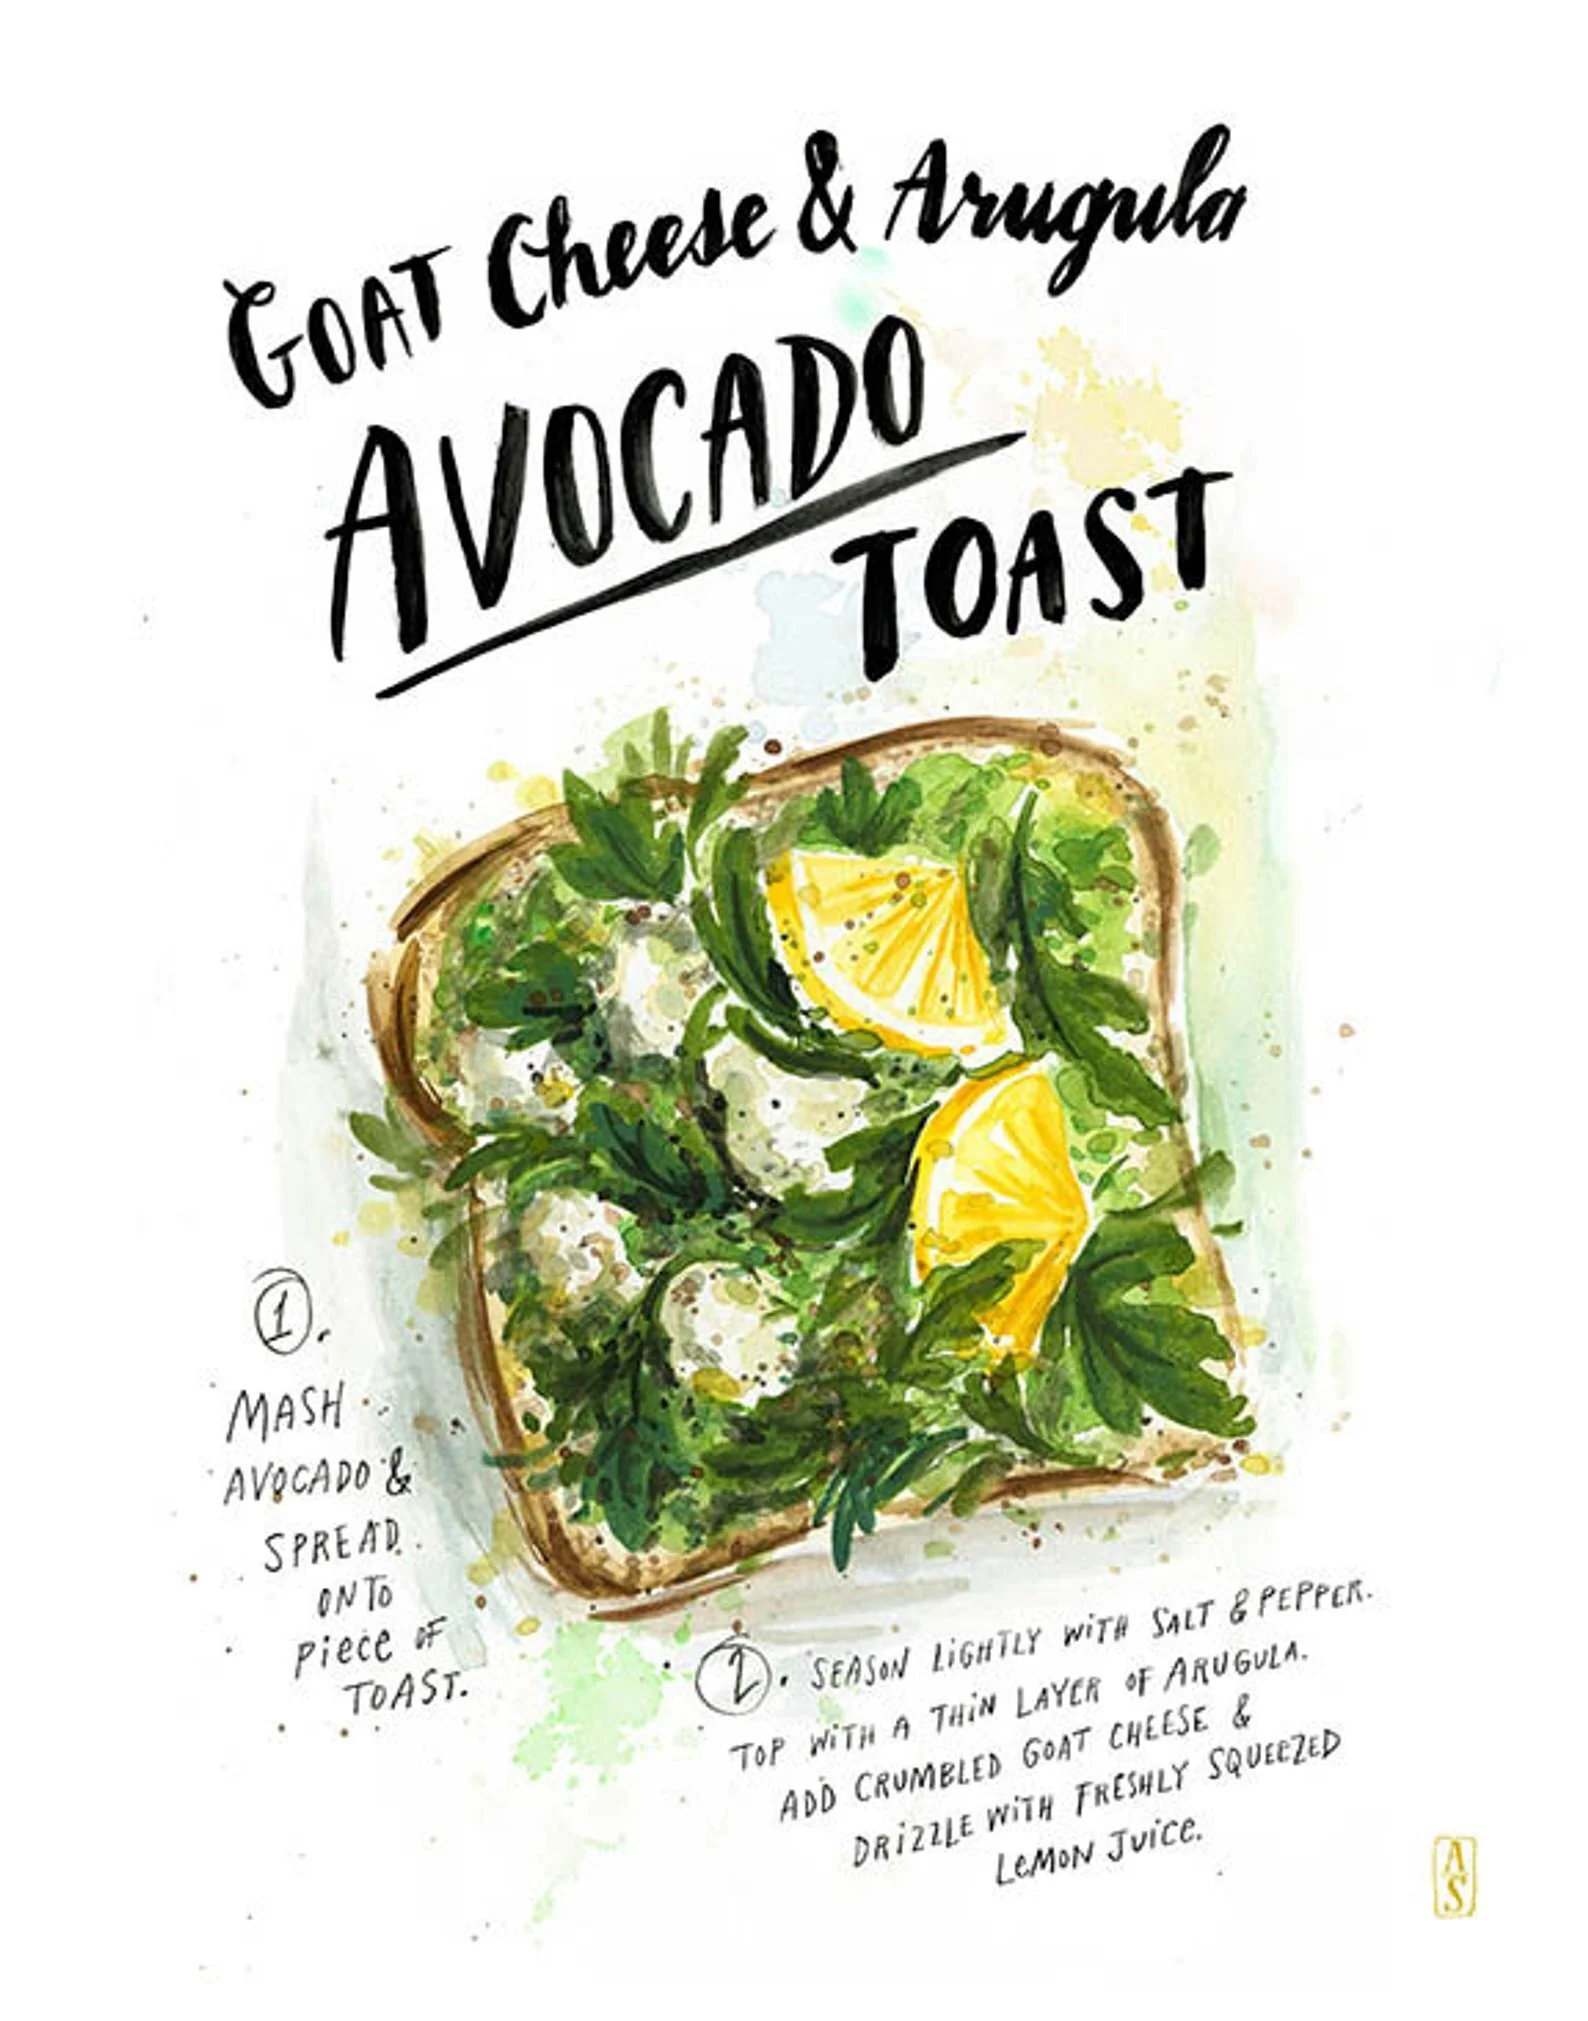 GOAT Cheese & Arugula
AVOCADO
TOAST
1.
MASH
AVOCADO &
SPREAD
ONTO
Piece OF
TOAST.
2. SEASON LiGHTLY WiTH SALT & PEPPER.
TOP WiTH A THiN LAYER OF ARUGULA.
ADD CRUMBLED GOAT CHEESE &
DRiZZLE WiTH FRESHLY SQUEEZED
LeMON JUiCe.
A
S